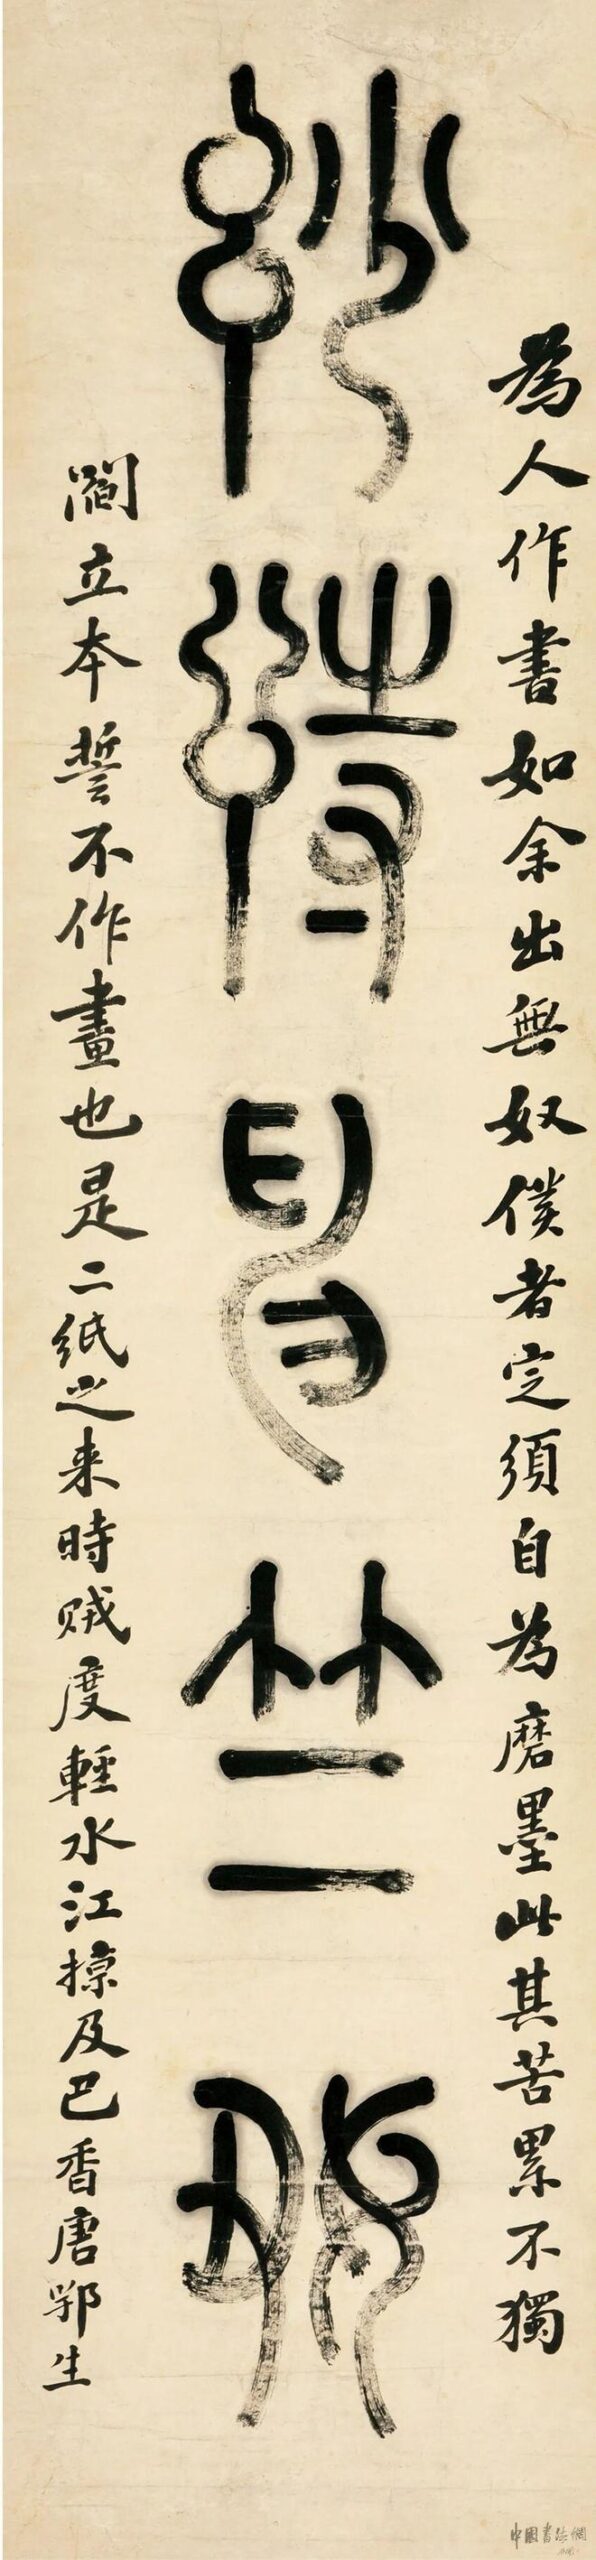 為人作書如余出無奴僕者定須自為磨墨此其苦累不獨
竺
閻立本誓不作畫也是二紙之来時賊度輕水江掠及巴香唐鄂生
中國書法網